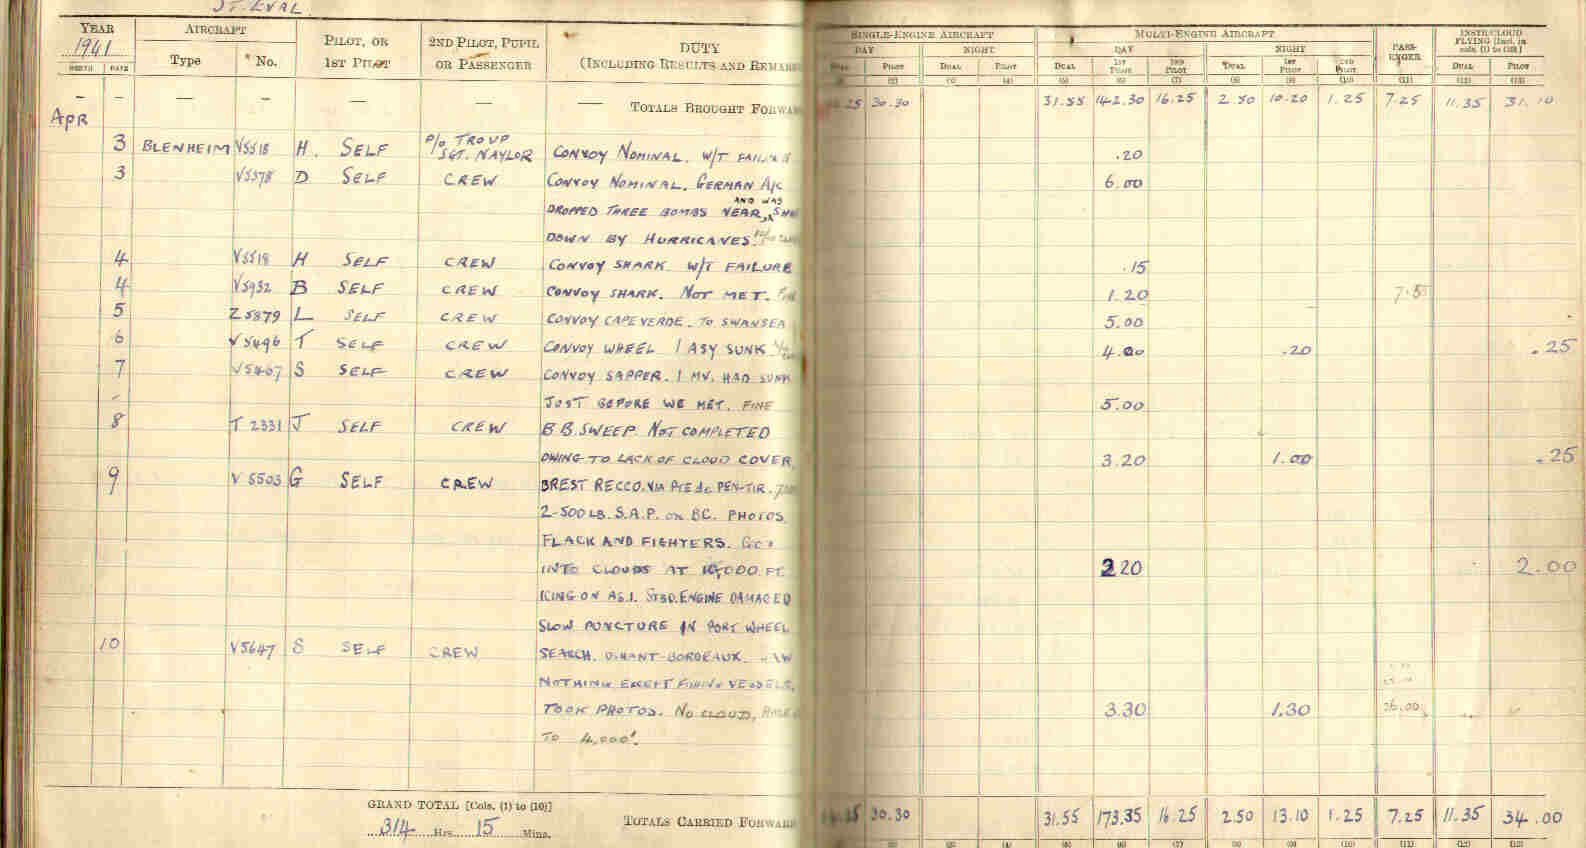 ST. EVAL
YEAR AIRCRAFT PILOT, OR 2ND PILOT, PUPIL DUTY SINGLE-ENGINE AIRCRAFT MULTI-ENGINE AIRCRAFT PASS- INSTR/CLOUD
1941 Type No. 1ST PILOT OR PASSENGER (INCLUDING RESULTS AND REMARKS DAY NIGHT DAY NIGHT ENGER FLYING [Incl. in cols. (1) to (10)]
MONTH DATE PILOT DUAL PILOT DUAL 1ST PILOT 2ND PILOT DUAL 1ST PILOT 2ND PILOT DUAL PILOT
(2) (3) (4) (5) (6) (7) (8) (9) (10) (11) (12) (13)
— — — — — — — TOTALS BROUGHT FORWAR .25 30.30 31.55 142.30 16.25 2.50 10.20 1.25 7.25 11.35 31.10
APR
3 BLENHEIM V5518 H. SELF P/O TROUP SGT. NAYLOR CONVOY NOMINAL. W/T FAILURE .20
3 V5378 D SELF CREW CONVOY NOMINAL. GERMAN A/C 6.00
AND WAS
DROPPED THREE BOMBS NEAR,
DOWN BY HURRICANES.
4 V5518 H SELF CREW CONVOY SHARK W/T FAILURE .15
4 V5932 B SELF CREW CONVOY SHARK. NOT MET. 1.20
5 Z5879 L SELF CREW CONVOY CAPE VERDE. TO SWANSEA 5.00
6 V5496 T SELF CREW CONVOY WHEEL 1 ASY SUNK 4.00 .20 .25
7 V5467 S SELF CREW CONVOY SAPPER. 1 MV. HAD SUNK
JUST BEFORE WE MET. FINE 5.00
8 T 2331 J SELF CREW B B. SWEEP. NOT COMPLETED
OWING TO LACK OF CLOUD COVER. 3.20 1.00 .25
9 V 5503 G SELF CREW BREST RECCO. VIA PTE de PEN-TIR.
2-500 LB. S.A.P. ON BC. PHOTOS.
FLACK AND FIGHTERS.
INTO CLOUDS AT 10,000 FT. 2.20 2.00
ICING ON A.S.I. STBD. ENGINE DAMAGED
SLOW PUNCTURE IN PORT WHEEL
10 V5647 S SELF CREW SEARCH. DINANT-BORDEAUX.
NOTHING EXCEPT FISHING VESSELS.
TOOK PHOTOS. NO CLOUD, 3.30 1.30 26.00
TO 4,000'.
GRAND TOTAL [Cols. (1) to (10)]
314 Hrs. 15 Mins. TOTALS CARRIED FORWARD .25 30.30 31.55 173.35 16.25 2.50 13.10 1.25 7.25 11.35 34.00
(2) (3) (4) (5) (6) (7) (8) (9) (10) (11) (12) (13)